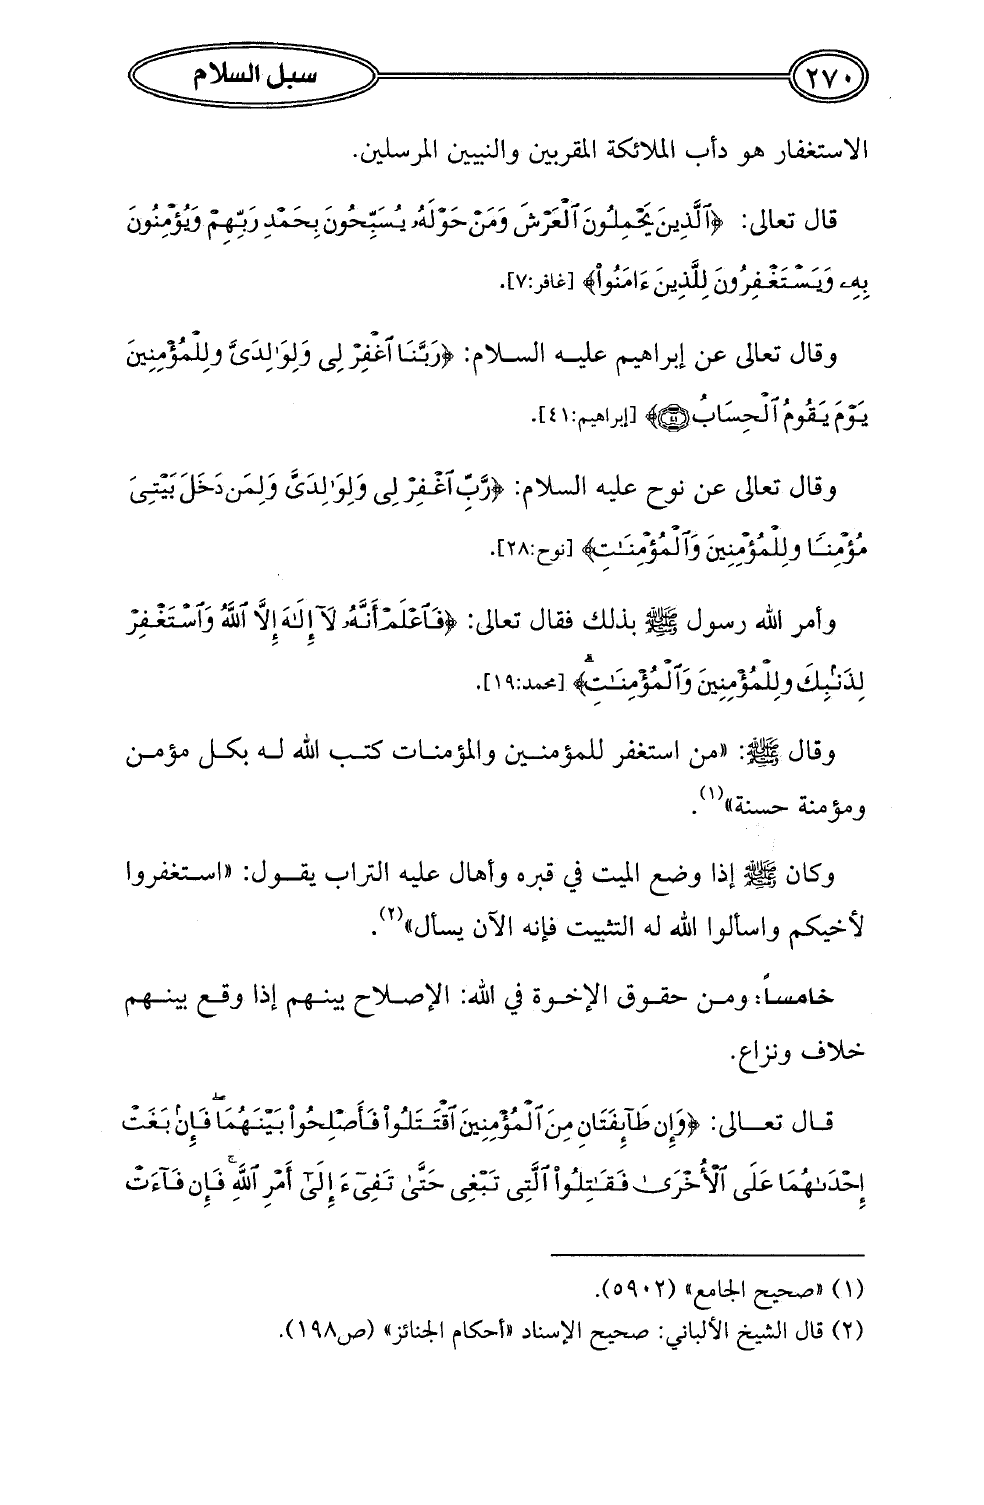 ٢٧٠
سبل السلام
الاستغفار هو دأب الملائكة المقربين والنبيين المرسلين.
قال تعالى: ﴿ٱلَّذِينَ يَحْمِلُونَ ٱلْعَرْشَ وَمَنْ حَوْلَهُۥ يُسَبِّحُونَ بِحَمْدِ رَبِّهِمْ وَيُؤْمِنُونَ
بِهِۦ وَيَسْتَغْفِرُونَ لِلَّذِينَ ءَامَنُوا۟﴾ [غافر:٧].
وقال تعالى عن إبراهيم عليه السلام: ﴿رَبَّنَا ٱغْفِرْ لِى وَلِوَٰلِدَىَّ وَلِلْمُؤْمِنِينَ
يَوْمَ يَقُومُ ٱلْحِسَابُ ۝٤١﴾ [إبراهيم:٤١].
وقال تعالى عن نوح عليه السلام: ﴿رَّبِّ ٱغْفِرْ لِى وَلِوَٰلِدَىَّ وَلِمَن دَخَلَ بَيْتِىَ
مُؤْمِنًا وَلِلْمُؤْمِنِينَ وَٱلْمُؤْمِنَٰتِ﴾ [نوح:٢٨].
وأمر الله رسول ﷺ بذلك فقال تعالى: ﴿فَٱعْلَمْ أَنَّهُۥ لَآ إِلَٰهَ إِلَّا ٱللَّهُ وَٱسْتَغْفِرْ
لِذَنۢبِكَ وَلِلْمُؤْمِنِينَ وَٱلْمُؤْمِنَٰتِ ۗ﴾ [محمد:١٩].
وقال ﷺ: «من استغفر للمؤمنين والمؤمنات كتب الله له بكل مؤمن
ومؤمنة حسنة»(١).
وكان ﷺ إذا وضع الميت في قبره وأهال عليه التراب يقول: «استغفروا
لأخيكم واسألوا الله له التثبيت فإنه الآن يسأل»(٢).
خامساً: ومن حقوق الإخوة في الله: الإصلاح بينهم إذا وقع بينهم
خلاف ونزاع.
قال تعالى: ﴿وَإِن طَآئِفَتَانِ مِنَ ٱلْمُؤْمِنِينَ ٱقْتَتَلُوا۟ فَأَصْلِحُوا۟ بَيْنَهُمَا ۖ فَإِنۢ بَغَتْ
إِحْدَىٰهُمَا عَلَى ٱلْأُخْرَىٰ فَقَٰتِلُوا۟ ٱلَّتِى تَبْغِى حَتَّىٰ تَفِىٓءَ إِلَىٰٓ أَمْرِ ٱللَّهِ ۚ فَإِن فَآءَتْ
(١) «صحيح الجامع» (٥٩٠٢).
(٢) قال الشيخ الألباني: صحيح الإسناد «أحكام الجنائز» (ص١٩٨).